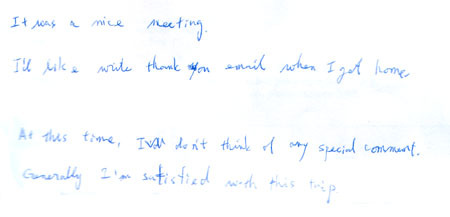 It was a nice meeting.
I'll like write thank you email when I get home.
At this time, I don't think of any special comment.
Generally I'm satisfied with this trip.